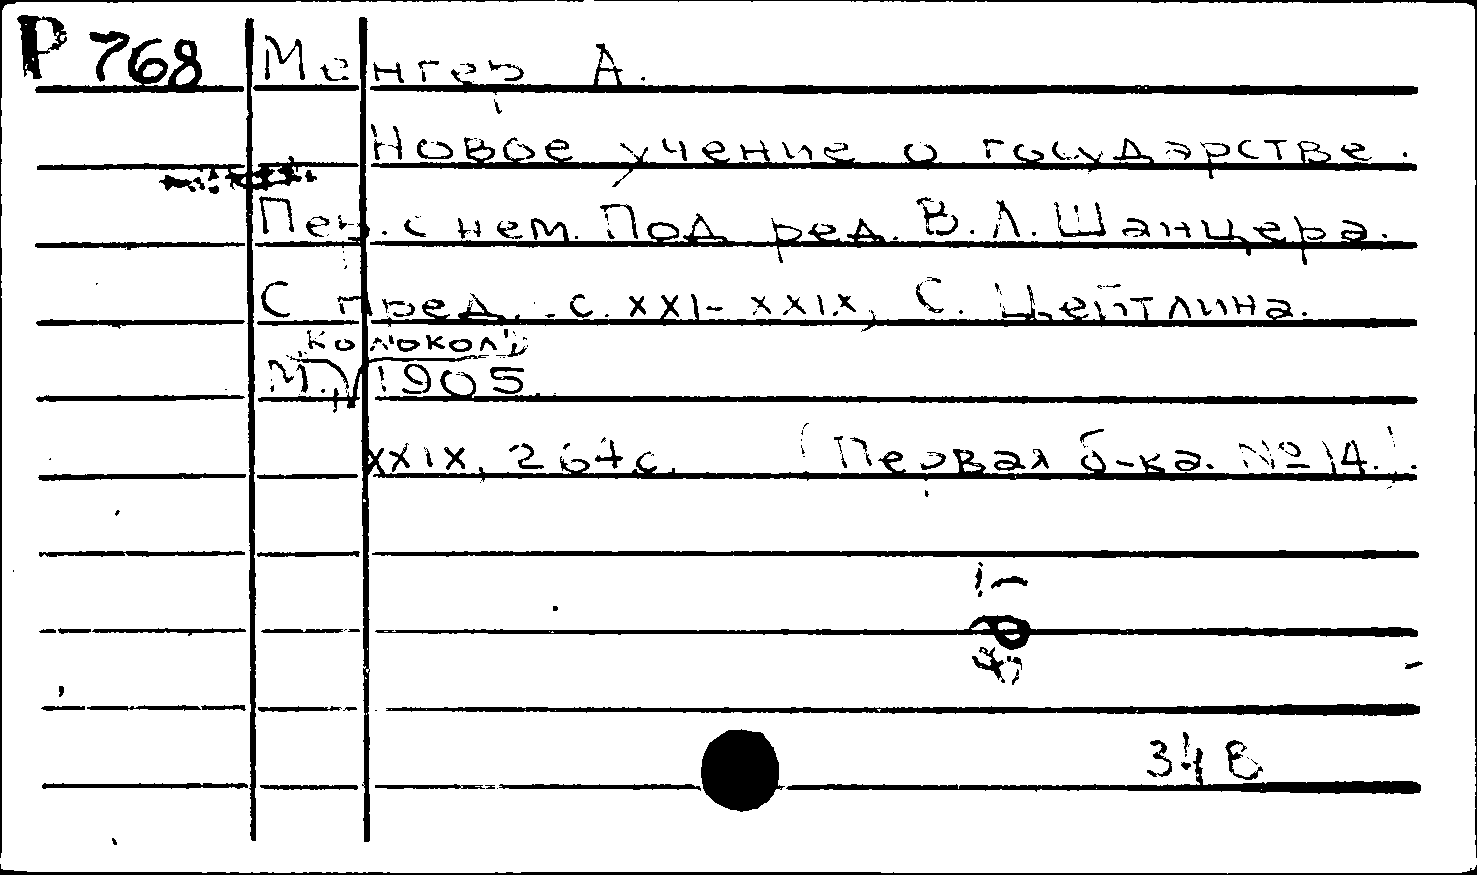 Р 768 Менгер А.
Новое учение о государстве.
Пер. с нем. Под ред. В.Л. Шанцера.
С пред. с. XXI-XXIX, С. Цейтлина.
"Колокол",
М., 1905.
XXIX, 267 с. (Первая б-ка. № 14.).
34 В